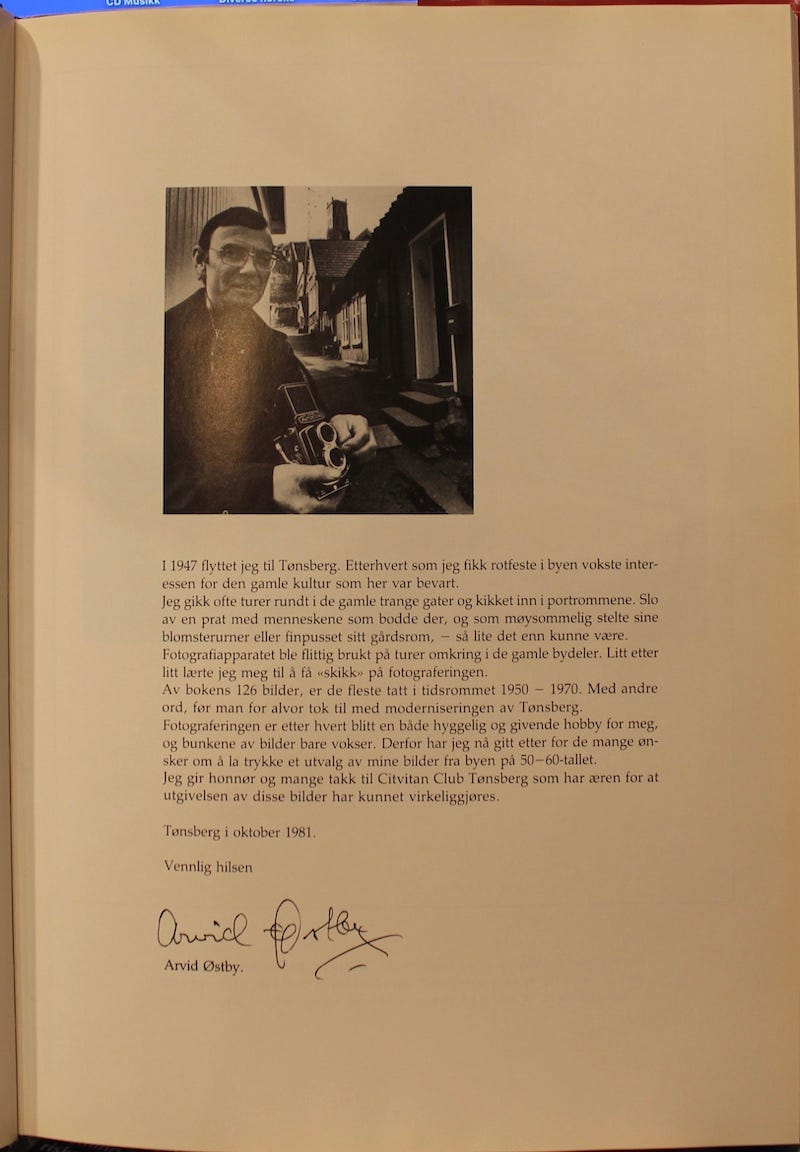 CD Musikk
Diverse norske
I 1947 flyttet jeg til Tønsberg. Etterhvert som jeg fikk rotfeste i byen vokste inter-
essen for den gamle kultur som her var bevart.
Jeg gikk ofte turer rundt i de gamle trange gater og kikket inn i portrommene. Slo
av en prat med menneskene som bodde der, og som møysommelig stelte sine
blomsterurner eller finpusset sitt gårdsrom, — så lite det enn kunne være.
Fotografiapparatet ble flittig brukt på turer omkring i de gamle bydeler. Litt etter
litt lærte jeg meg til å få «skikk» på fotograferingen.
Av bokens 126 bilder, er de fleste tatt i tidsrommet 1950 — 1970. Med andre
ord, før man for alvor tok til med moderniseringen av Tønsberg.
Fotograferingen er etter hvert blitt en både hyggelig og givende hobby for meg,
og bunkene av bilder bare vokser. Derfor har jeg nå gitt etter for de mange øn-
sker om å la trykke et utvalg av mine bilder fra byen på 50—60-tallet.
Jeg gir honnør og mange takk til Citvitan Club Tønsberg som har æren for at
utgivelsen av disse bilder har kunnet virkeliggjøres.
Tønsberg i oktober 1981.
Vennlig hilsen
Arvid Østby
Arvid Østby.